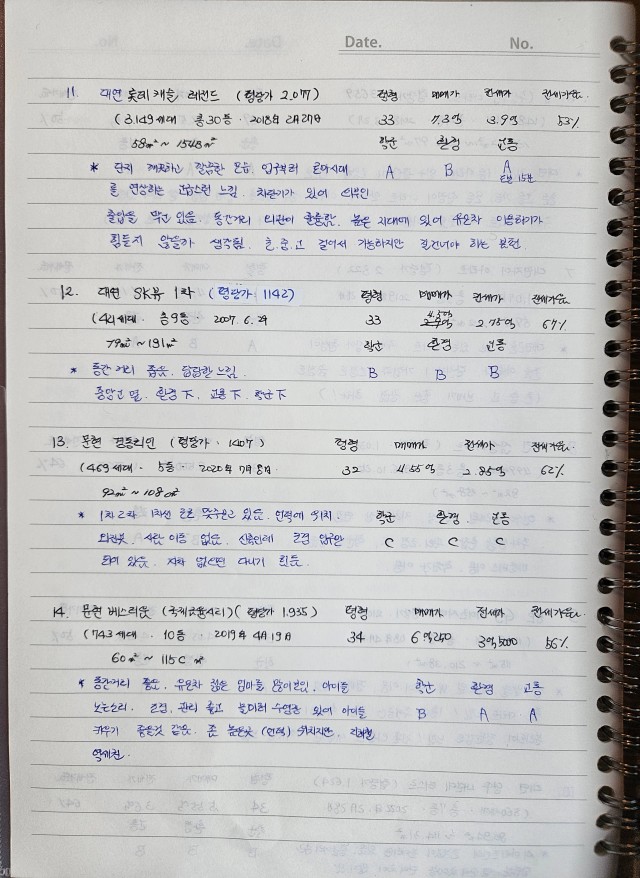 Date. No.
11. 대연 롯데캐슬 레전드 (평당가 2.077) 평형 매매가 전세가 전세가율.
(3.149세대 총30동 · 2018년 2月27日 33 7.3억 3.9억 53%
58m² ~ 154m² 학군 환경 교통
* 단지 깨끗하고 깔끔한 모습 입구부터 로마시대 A B A
를 연상하는 고급스런 느낌. 차단기가 있어 외부인 도보 15분
출입을 막고 있음. 동간거리 조경이 훌륭함. 높은 지대에 있어 유모차 이용하기가
힘들지 않을까 생각됨. 초.중.고 걸어서 가능하지만 길건너야 하는 단점.
12. 대연 SK뷰 1차 (평당가 1142) 평형 매매가 전세가 전세가율
(44세대 · 총9동 · 2007. 6. 29 33 2.75억 67%
79m² ~ 191m² 학군 환경 교통
* 동간 거리 좁음. 답답한 느낌. B B B
중앙고 옆. 환경 下, 교통 下. 학군 下
13. 문현 (평당가 · 1407) 평형 매매가 전세가 전세가율
(469세대 · 5동 · 2020年 7月 8日 32 4.55억 2.85억 62%
92m² ~ 108m²
* 1차 2차 1차선 도로 마주보고 있음. 언덕에 위치. 학군 환경 교통
사람 이동 없음. 신축인데 조경 C C C
되어 있음. 자차 없으면 다니기 힘듬.
14. 문현 베스티움 (국제금융시티) (평당가 1.935) 평형 매매가 전세가 전세가율.
(743세대 · 10동 · 2019年 4月 19日 34 6억250 3억5000 56%
60m² ~ 115C m²
* 동간거리 좋음. 유모차 끄는 엄마들 많이보임. 아이들 학군 환경 교통
노는소리. 조경, 관리 좋고 놀이터 수영장 있어 아이들 B A A
키우기 좋을것 같음. 좀 높은곳 (언덕) 위치지만. 지하철
역세권.